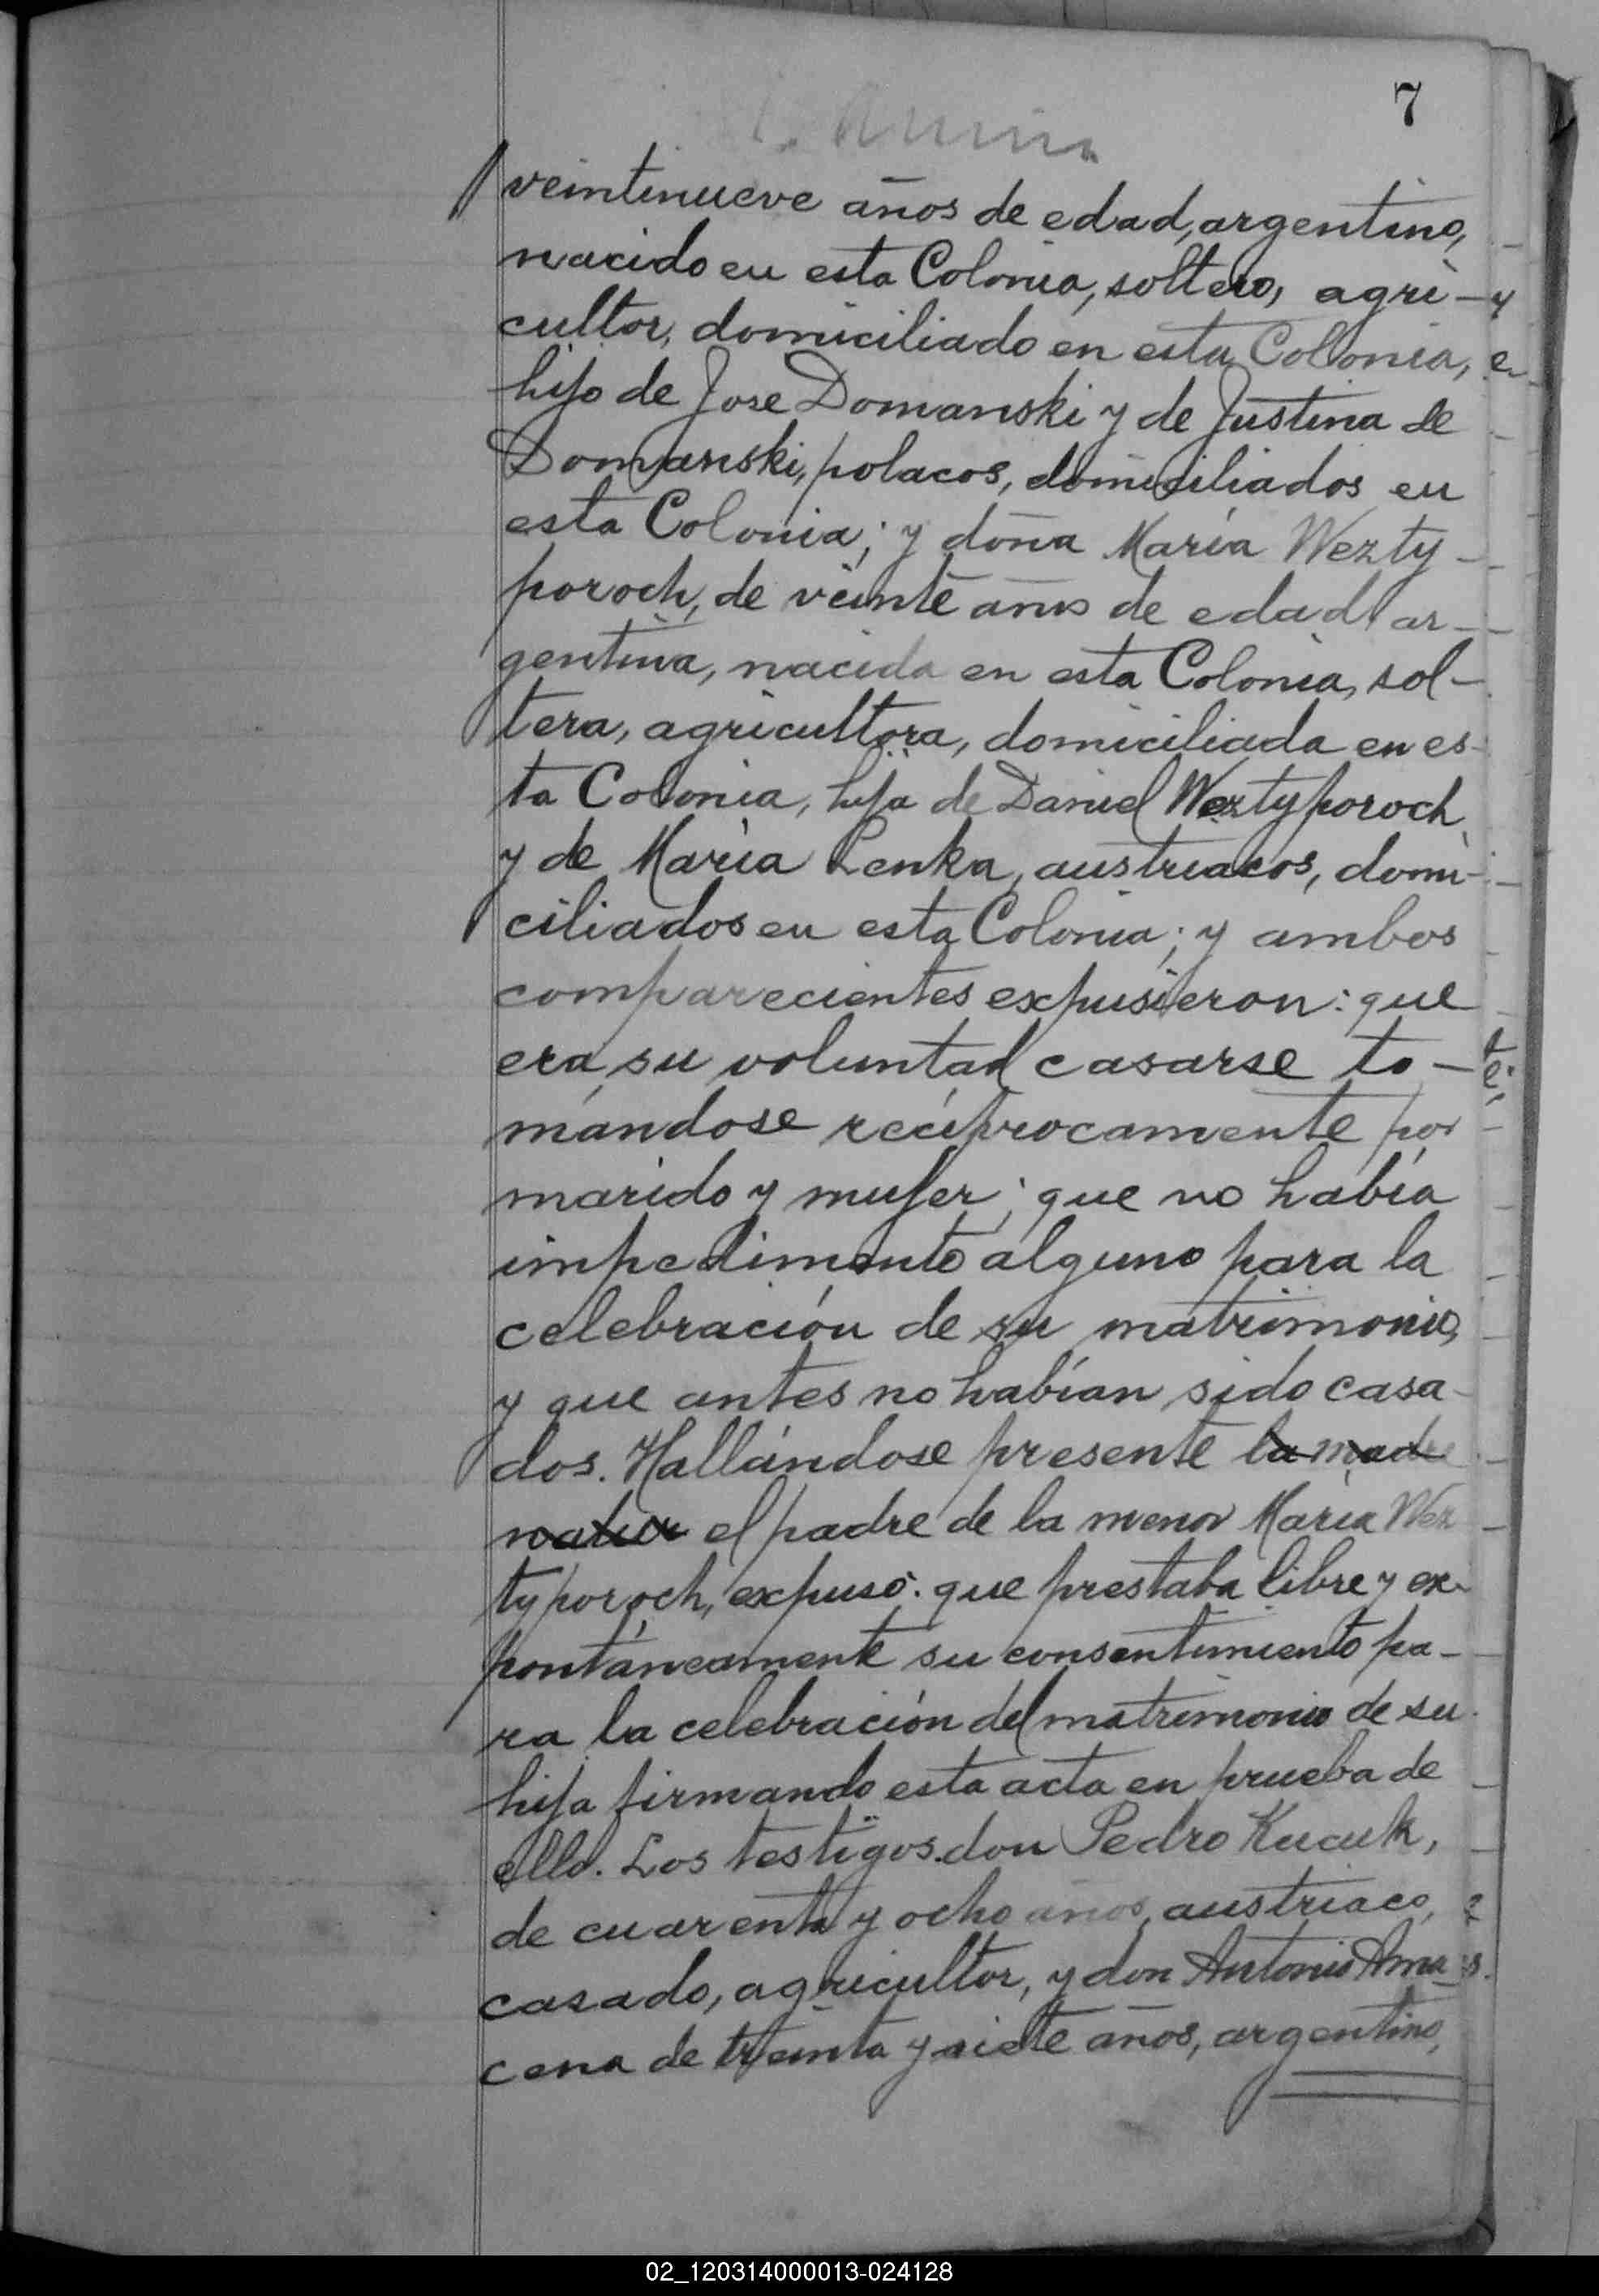 7
veintinueve años de edad, argentino,
nacido en esta Colonia, soltero, agri-
cultor, domiciliado en esta Colonia,
hijo de Jose Domanski y de Justina de
Domanski, polacos, domiciliados en
esta Colonia; y doña María Wezty-
poroch, de veinte años de edad, ar-
gentina, nacida en esta Colonia, sol-
tera, agricultora, domiciliada en es-
ta Colonia, hija de Daniel Weztyporoch
y de María Lenka, austriacos, domi-
ciliados en esta Colonia; y ambos
comparecientes expusieron: que
era su voluntad casarse to-
mándose recíprocamente por
marido y mujer; que no había
impedimento alguno para la
celebración de su matrimonio,
y que antes no habían sido casa-
dos. Hallándose presente la madre
el padre de la menor María Wez
typoroch, expuso: que prestaba libre y ex-
pontáneamente su consentimiento pa-
ra la celebración del matrimonio de su
hija firmando esta acta en prueba de
ello. Los testigos don Pedro Kucuk,
de cuarenta y ocho años, austriaco,
casado, agricultor, y don Antonio Ama-
cena de treinta y siete años, argentino,
02_120314000013-024128